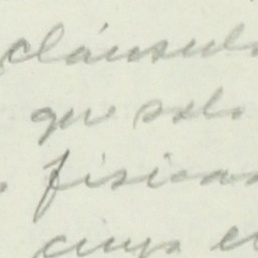 cláusula
que solo
físicas
cuya